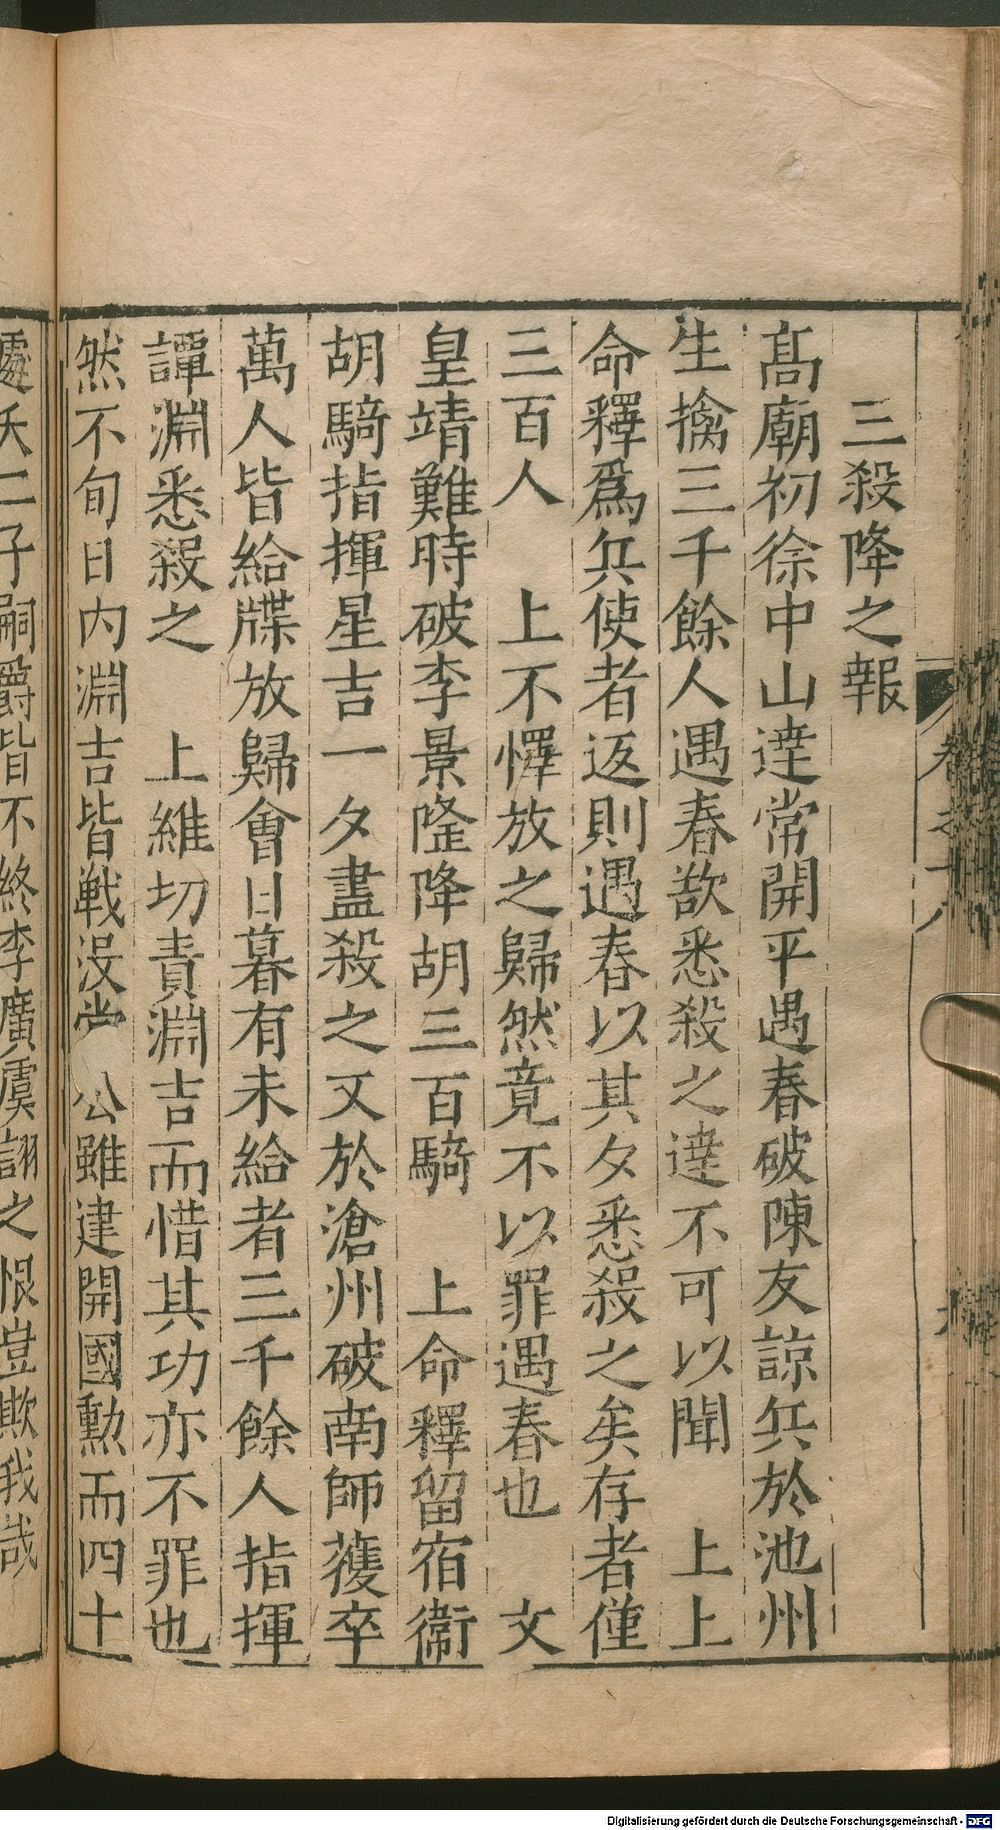 三殺降之報
髙廟初徐中山逹常開平遇春破陳友諒兵於池州
生擒三千餘人遇春欲悉殺之逹不可以聞　上上
命釋爲兵使者返則遇春以其夕悉殺之矣存者僅
三百人　上不懌放之歸然竟不以罪遇春也　文
皇靖難時破李景隆降胡三百騎　上命釋留宿衛
胡騎指揮星吉一夕盡殺之又於滄州破南師獲卒
萬人皆給牒放歸會日暮有未給者三千餘人指揮
譚淵悉殺之　上雖切責淵吉而惜其功亦不罪也
然不旬日内淵吉皆戰没常公雖建開國勳而四十
二子嗣爵皆不終李廣虞詡之恨豈欺我哉
Digitalisierung gefördert durch die Deutsche Forschungsgemeinschaft - DFG